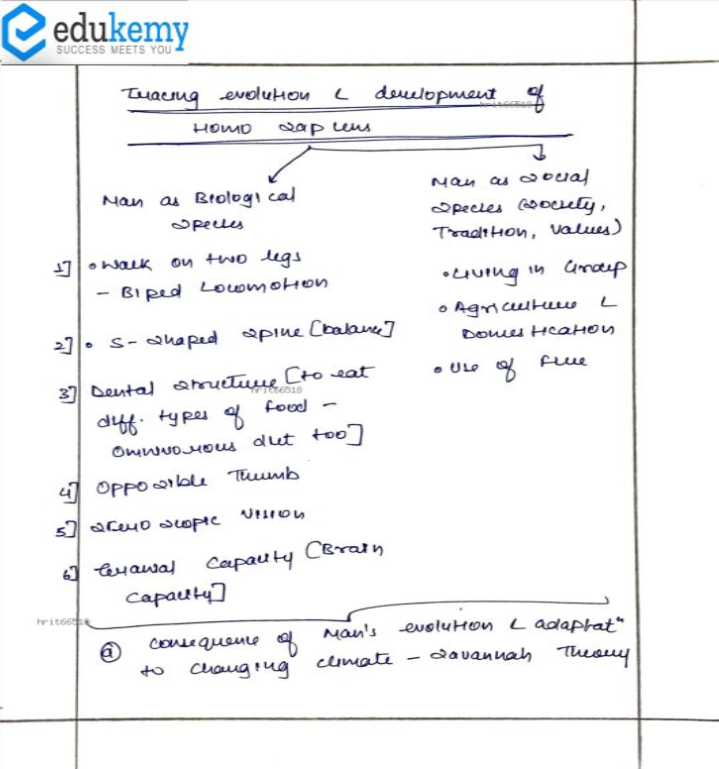 edukemy
SUCCESS MEETS YOU
Tracing evolution & development of
hrit66518
Homo sapiens
Man as Biological
species
1] • Walk on two legs
– Biped Locomotion
2] • S-shaped spine [balance]
3] Dental structure [to eat
hrit66518
diff. types of food –
omnivorous diet too]
4] Opposible Thumb
5] stereoscopic vision
6] Cranial capacity [Brain
capacity]
Man as social
species (society,
Tradition, values)
• Living in Group
• Agriculture &
Domestication
• Use of fire
hrit66518
(a) consequence of Man's evolution & adaptatⁿ
to changing climate – savannah Theory